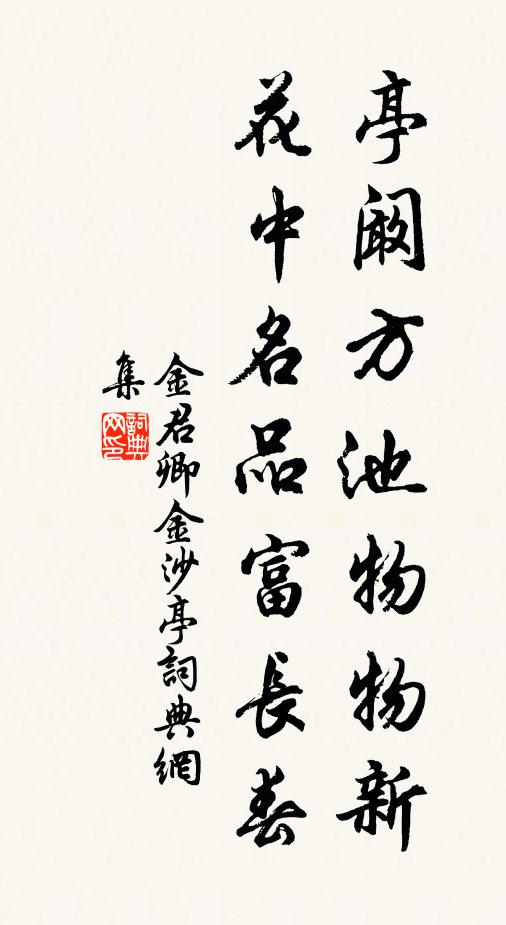 亭阚方池物物新
花中名品富長春
金君卿金沙亭詞典網
集
詞典
网印